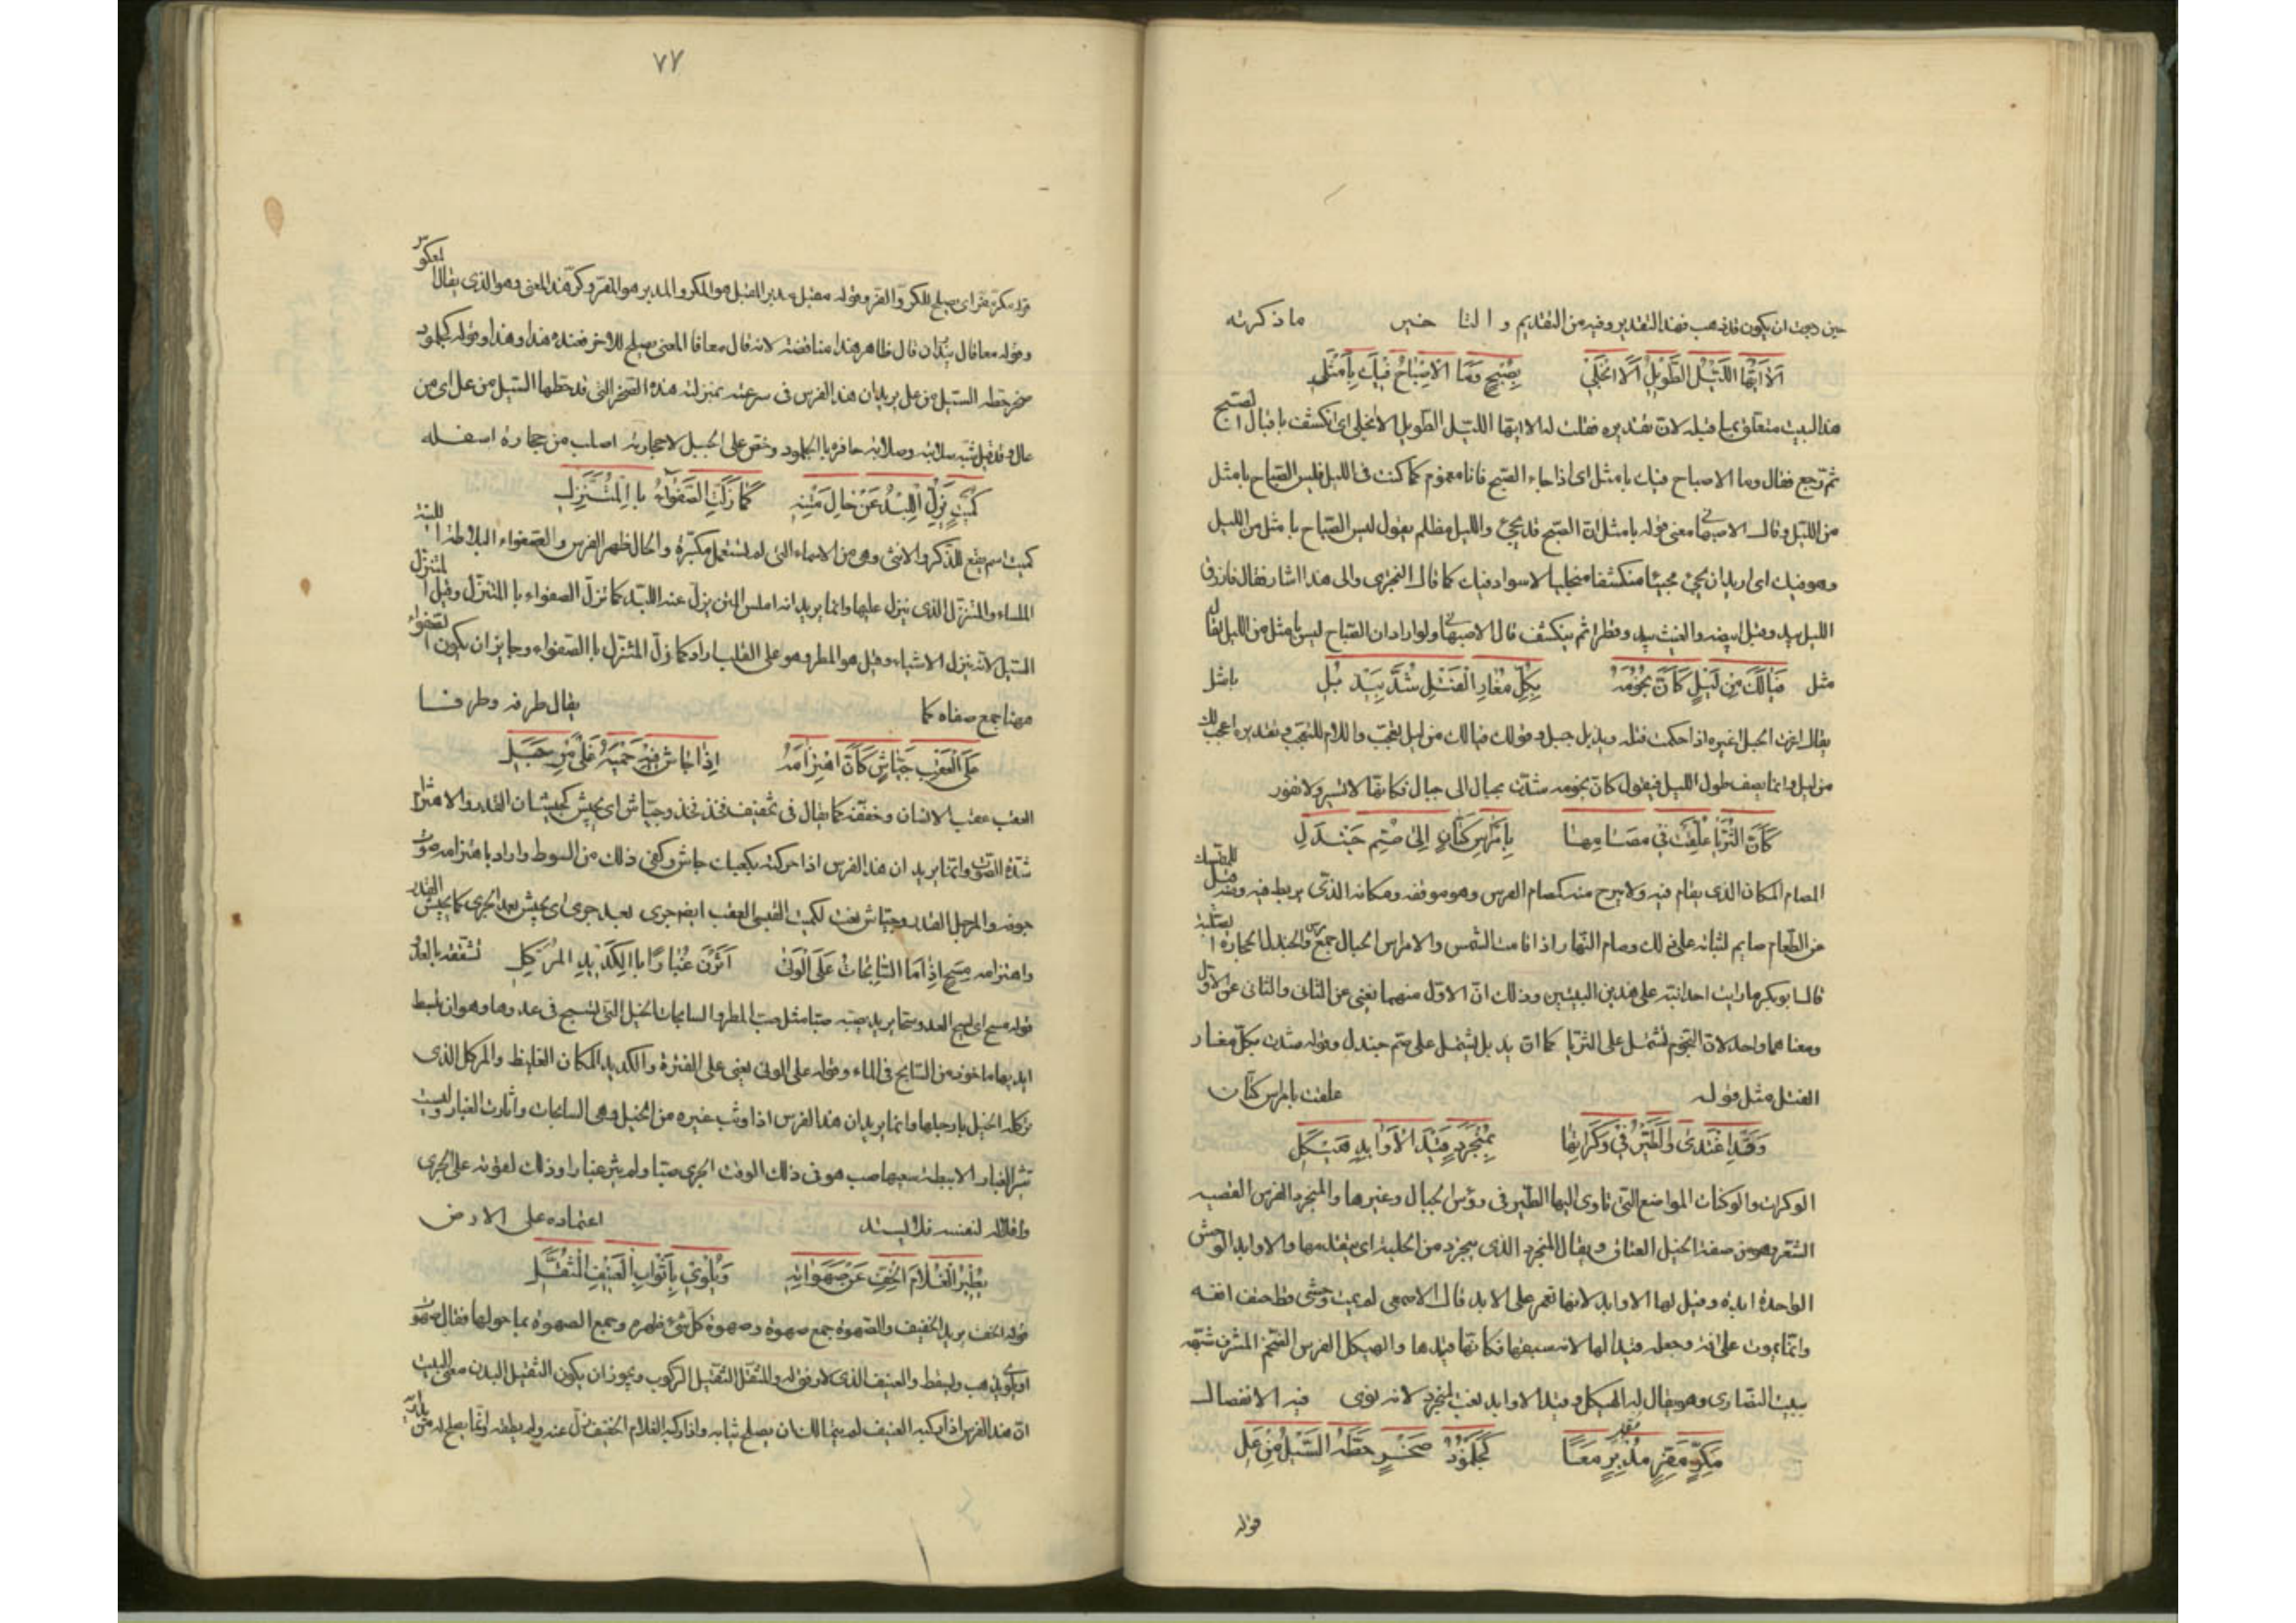 حين رجوت ان يكون قد ذهب فهذا التقدير وفيه من التقديم و التا خير ما ذكرته
اَلا اَيُّهَا اللَّيْلُ الطَّوِيْلُ اَلا انْجَلِيْ بِصُبْحٍ وَمَا الاِصْبَاحُ فِيْكَ بِاَمْثَلِ
هذا البيت متعلق بما قبله لان تقديره فقلت له الا ايها الليل الطويل الا انجلى اى انكشف باقبال الصبح
ثم رجع فقال وما الاصباح فيك بامثل اى اذا جاء الصبح فانا مغموم كما كنت فى الليل فليس الصباح بامثل
من الليل وقال الاصبهانى معنى قوله بامثل ان الصبح قد يجئ والليل مظلم يقول ليس الصباح بامثل من الليل
وهو فيك اى اريد ان يجئ مجيئا منكشفا منجليا لا سواد فيك كما قال والى هذا اشار فقال
الليل ثم ينكشف قال الاصبهانى ولو اراد ان الصباح ليس بامثل من الليل لقال
مثل فَيَا لَكَ مِن لَيْلٍ كَاَنَّ نُجُوْمَهُ بِكُلِّ مُغَارِ الْفَتْلِ شُدَّ بِيَذْبُلِ بامثل
يقال اغرت الحبل اغيره اذا احكمت فتله ويذبل جبل وقولك فيا لك من ليل تعجب واللام للتعجب تقديره اعجب لك
من ليل وانما يصف طول الليل فيقول كان نجومه شدت بحبال الى جبال فكانها لا تسير ولا تغور
كَاَنَّ الثُّرَيَّا عُلِّقَتْ فِي مَصَامِهَا بِاَمْرَاسِ كَتَّانٍ اِلىٰ صُمِّ جَنْدَلِ
المصام المكان الذى يقام فيه ولا يبرح منه كمصام الفرس وهو موقفه ومكانه الذى يربط فيه ومنه قيل للممسك
عن الطعام صايم لثباته على ذلك وصام النهار اذا قامت الشمس والامراس الحبال جمع مرس والجندل الحجارة الصلبة
قال ابو بكر ما رايت احدا نبه على هذين البيتين وذلك ان الاول منهما يغنى عن الثانى والثانى عن الاول
ومعناهما واحد لان النجوم تشتمل على الثريا كما ان يذبل يشتمل على صم جندل وقوله شدت بكل مغار
الفتل مثل قوله علقت بامراس كتان
وَقَدْ اَغْتَدِىْ وَالطَّيْرُ فِيْ وُكَرَاتِهَا بِمُنْجَرِدٍ قَيْدِ الْاَوَابِدِ هَيْكَلِ
الوكرات والوكنات المواضع التى تاوى اليها الطير فى رؤس الجبال وغيرها والمنجرد الفرس القصير
الشعر وهو من صفة الخيل العتاق ويقال المنجرد الذى ينجرد من الحلبة اى يتقدمها والاوابد الوحش
الواحدة ابدة وقيل لها الاوابد لانها تعمر على الابد قال الاصمعى لم يمت وحشى قط حتف انفه
وانما يموت على افة وجعله قيدا لها لانه يسبقها فكانها قيدها والهيكل الفرس الضخم المشرف شبه
ببيت النصارى وهو يقال له الهيكل وقيد الاوابد نعت لمنجرد لانه نوى فيه الانفصال
مِكَرٍّ مِفَرٍّ مقبل مُدْبِرٍ مَعًا كَجُلْمُوْدِ صَخْرٍ حَطَّهُ السَّيْلُ مِنْ عَلِ
قوله
٧٧
قوله مكر مفر اى يصلح للكر والفر وقوله مقبل مدبر المقبل هو المكر والمدبر هو المفر وكرر هذا المعنى وهو الذى يقال له العكوس
وقوله معا قال بندان قال ظاهر هذا مناقضة لانه قال معا قال المعنى يصلح للاخر فعنده هذا وهذا وقوله كجلمود
صخر حطه السيل من عل يريد ان هذا الفرس فى سرعته بمنزلة هذه الصخرة التى قد حطها السيل من عل اى من
عال وقد قيل شبه صلابته وصلابة حافره بالجلمود وخص على الجبل لا حجارته اصلب من حجارة اسفله
كُمَيْتٍ يَزِلُّ اللِّبْدُ عَنْ حَالِ مَتْنِهِ كَمَا زَلَّتِ الصَّفْوَاءُ بِالْمُتَنَزِّلِ
كميت اسم يقع للذكر والانثى وهو من الاسماء التى لم تستعمل مكبرة والحال ظهر الفرس والصفواء البلاطة اللينة
الملساء والمتنزل الذى ينزل عليها وانما يريد انه املس المتن يزل عنه اللبد كما تزل الصفواء بالمتنزل وقيل المتنزل
السيل لانه ينزل الاشياء وقيل هو المطر وهو على القلب اراد كما زل المتنزل بالصفواء وجايز ان يكون الصفواء
ههنا جمع صفاه كما يقال طرفه وطرفا
عَلَى الْعَقْبِ جَيَّاشٍ كَاَنَّ اهْتِزَامَهُ اِذَا جَاشَ فِيْهِ حَمْيُهُ غَلْيُ مِرْجَلِ
العقب عقب الانسان وخففه كما يقال فى تخفيف فخذ فخذ وجياش اى يجيش كجيشان القدر والاهتزام
شدة الصوت وانما يريد ان هذا الفرس اذا حركته بكعبك جاش وكفى ذلك من السوط واراد باهتزامه صوت
جوفه والمرجل القدر وجياش نعت لكميت القبسى العقب ايضه جرى بعد جرى اى يجيش بعد الجرى كما يجيش القدر
واهتزامه مِسَحٍّ اِذَا مَا السَّابِحَاتُ عَلَى الْوَنىٰ اَثَرْنَ غُبَارًا بِالكَدِيْدِ الْمُرَكَّلِ
قوله مسح اى يسح العدو سحا يريد يصبه صبا مثل صب المطر والسابحات الخيل التى تسبح فى عدوها وهو ان تبسط
ايديها ماخوذ من السابح فى الماء وقوله على الونى يعنى على الفترة والكديد المكان الغليظ والمركل الذى
تركله الخيل بارجلها وانما يريد ان هذا الفرس اذا وثب غيره من الخيل وهى السابحات واثارت الغبار وليست
تثير الغبار الا ببطئه سعيها صب هو فى ذلك الوقت الجرى صبا ولم يثر غبارا وذلك لقوته على الجرى
واقلاله لنفسه اعتماده على الارض
يُطِيْرُ الْغُلَامَ الْخِفَّ عَنْ صَهَوَاتِهِ وَيُلْوِيْ بِاَثْوَابِ الْعَنِيْفِ الْمُثَقَّلِ
قوله الخف يريد الخفيف والصهوة جمع صهوة وصهوة كل شئ ظهره وجمع الصهوة بما حولها فقال صهوات
او يلوى يذهب ويسقط والعنيف الذى لا رفق له والمثقل الثقيل الركوب ويجوز ان يكون الثقيل البدن معنى البيت
ان هذا الفرس اذا ركبه العنيف لم يتمالك ان يصلح ثيابه واذا ركبه الغلام الخفيف زل عنه ولم يطقه وانما يصلح له من